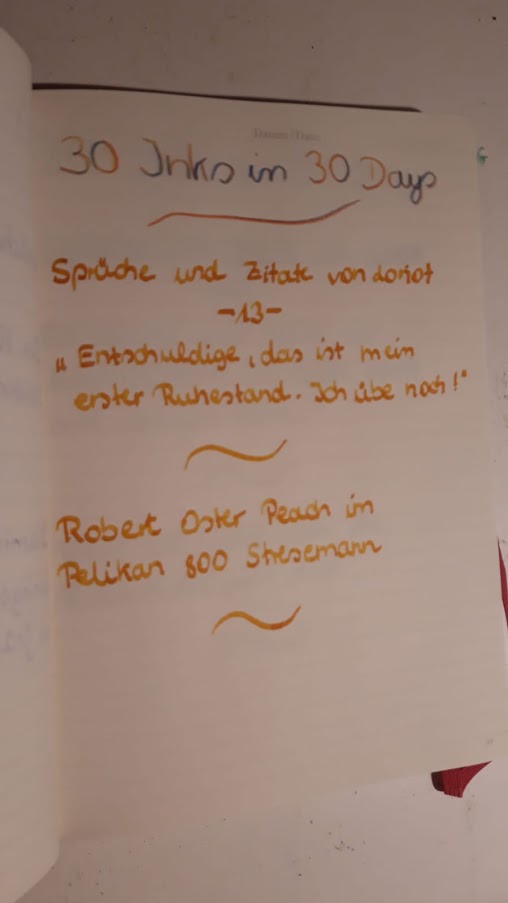 Datum/Date
30 Inks in 30 Days
Sprüche und Zitate von Loriot
-13-
„Entschuldige, das ist mein
erster Ruhestand. Ich übe noch!"
Robert Oster Peach im
Pelikan 800 Stresemann